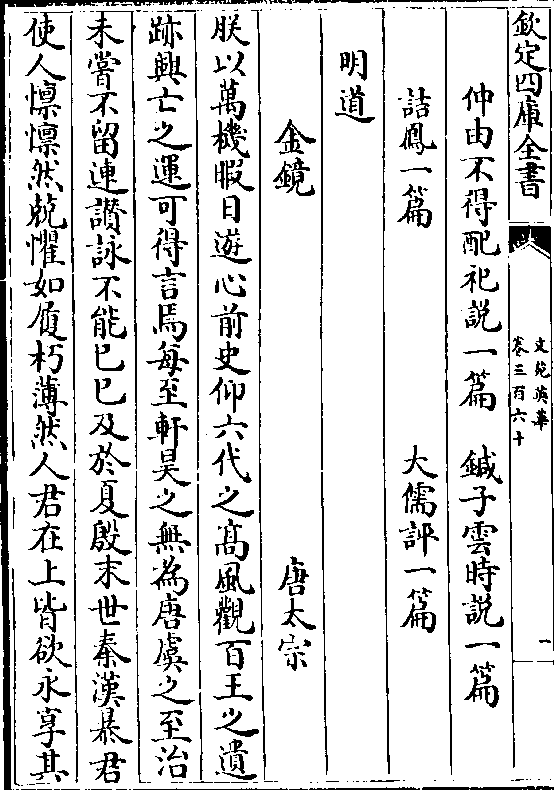 欽定四庫全書
文苑英華
卷三百六十
一
仲由不得配祀說一篇 鍼子雲時說一篇
詰鳳一篇 大儒評一篇
明道
金鏡 唐太宗
朕以萬機暇日遊心前史仰六代之髙風觀百王之遺
跡興亡之運可得言焉每至軒昊之無為唐虞之至治
未嘗不留連讃詠不能已已及於夏殷末世秦漢暴君
使人懍懍然兢懼如履朽薄然人君在上皆欲永享其